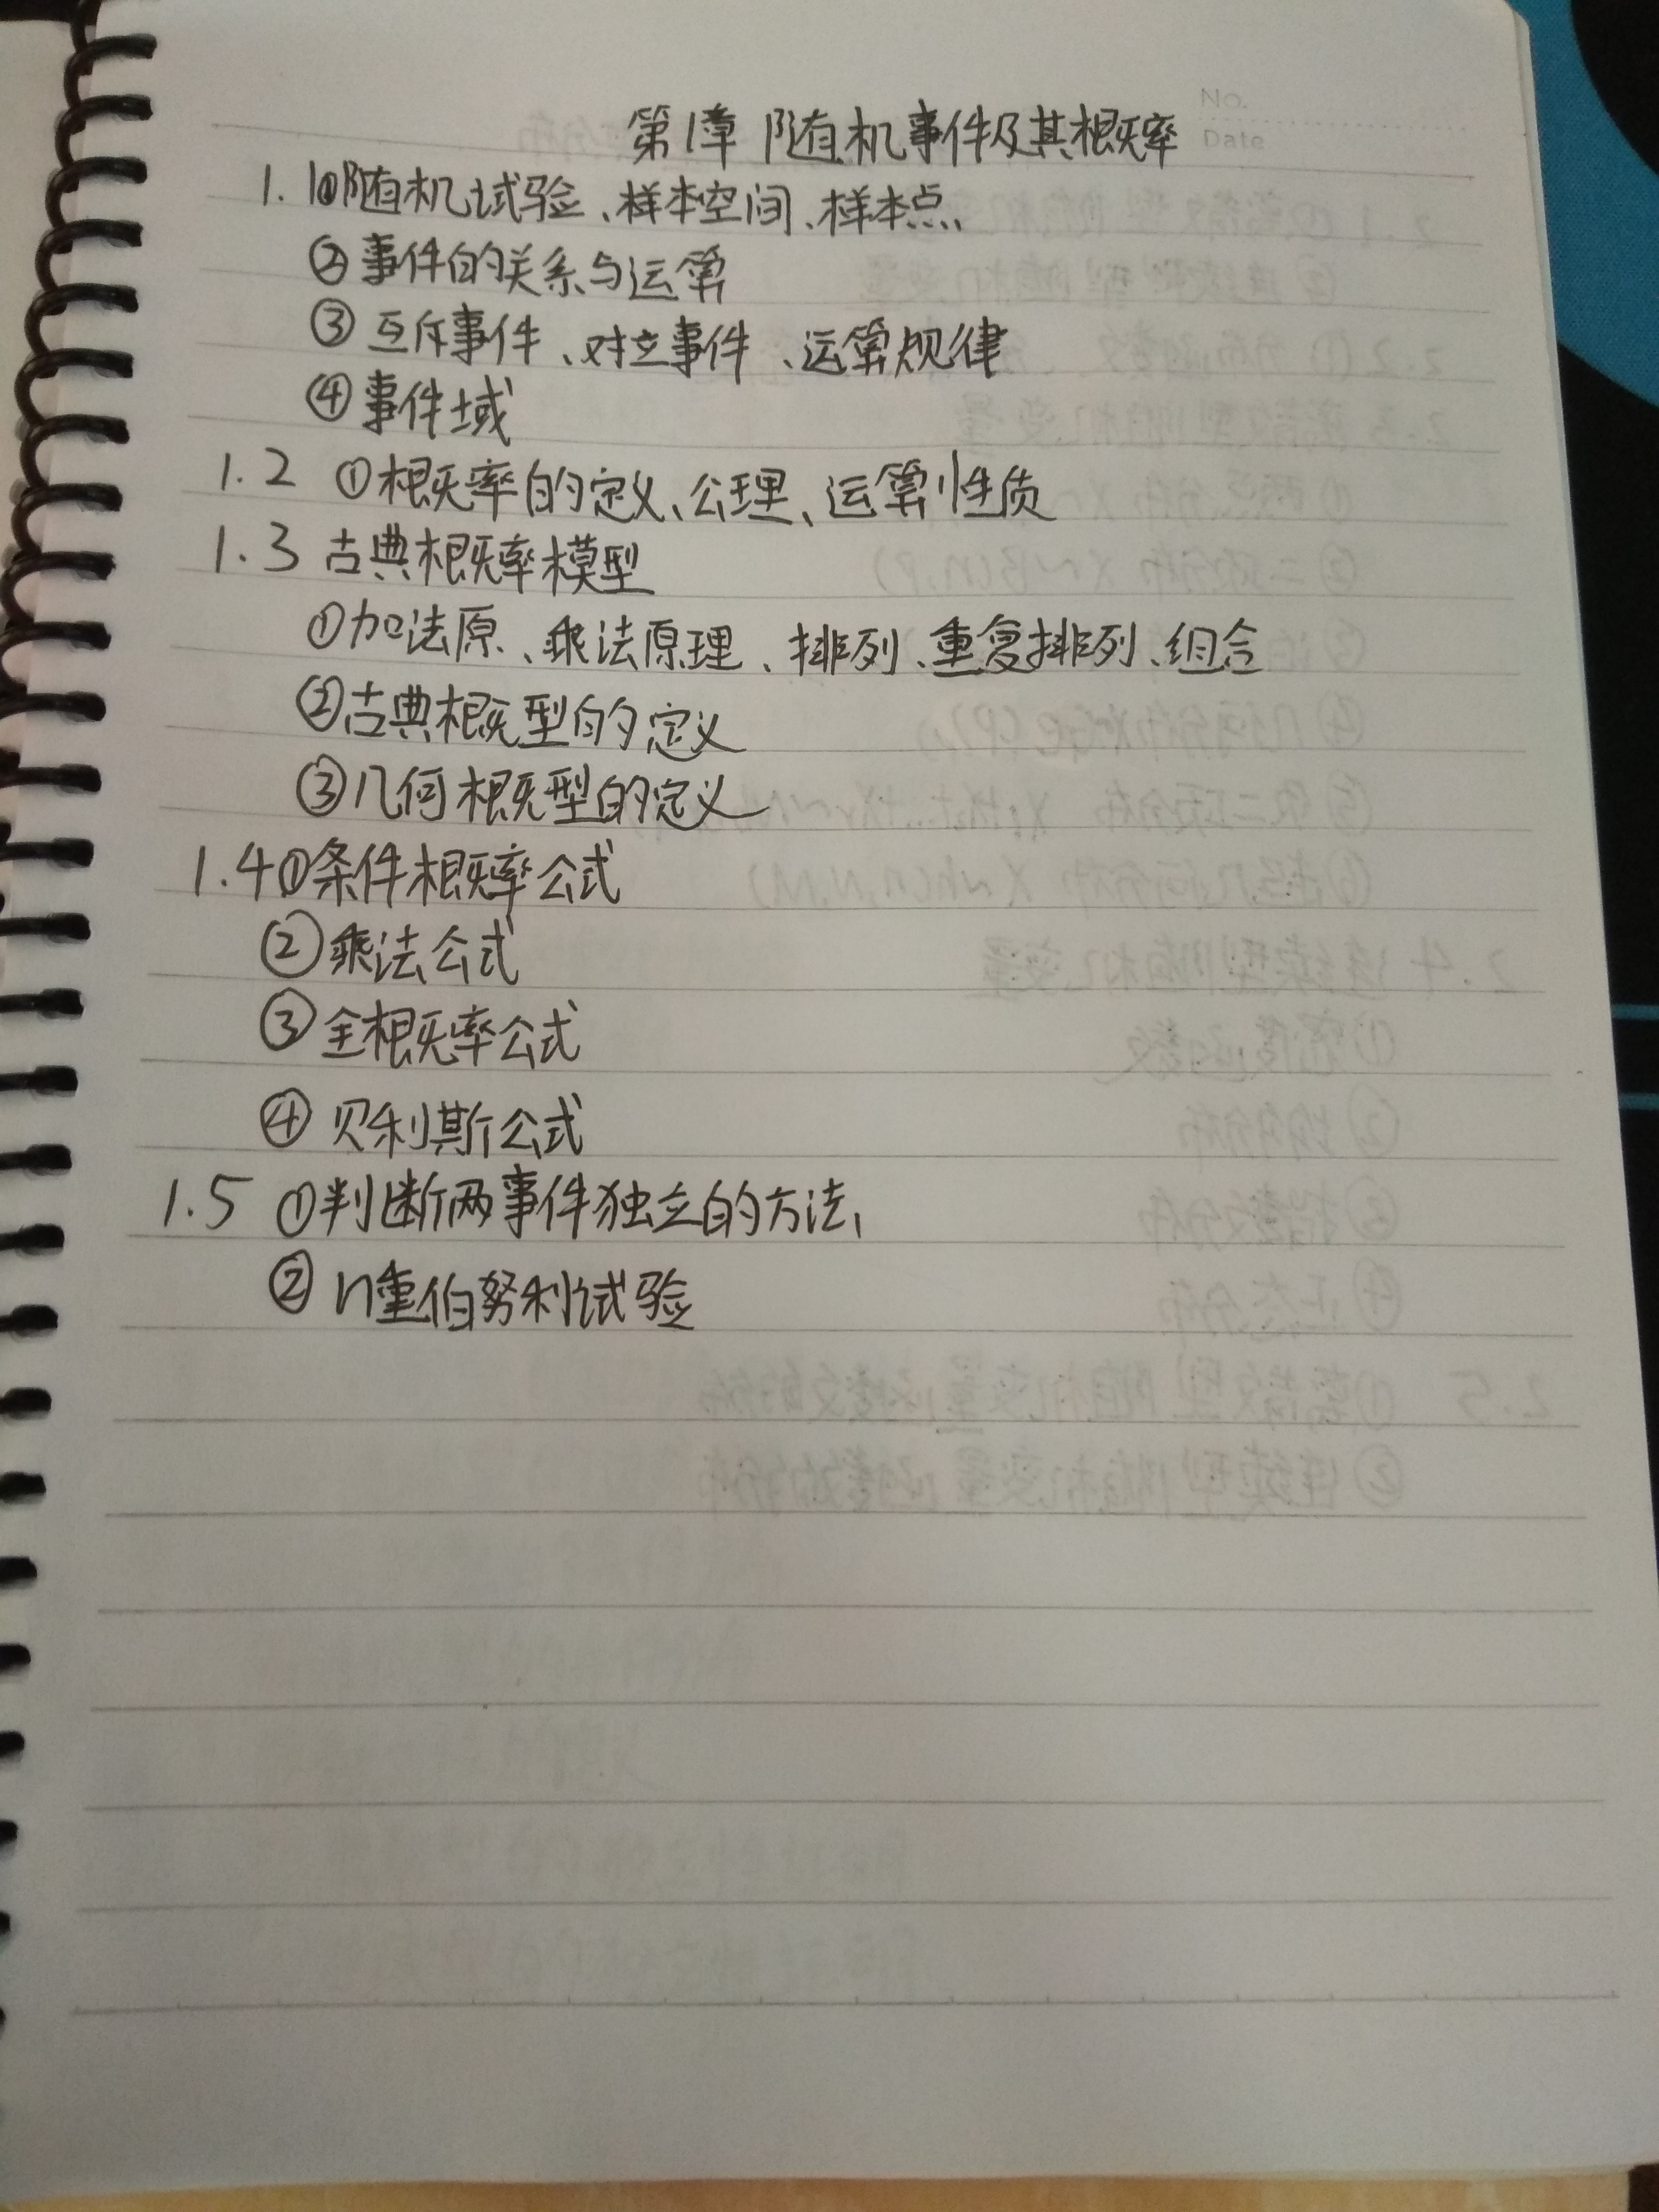 No.
Date
第1章 随机事件及其概率
1.1①随机试验、样本空间、样本点、
②事件的关系与运算
③互斥事件、对立事件、运算规律
④事件域
1.2 ①概率的定义、公理、运算性质
1.3 古典概率模型
①加法原、乘法原理、排列、重复排列、组合
②古典概型的定义
③几何概型的定义
1.4①条件概率公式
②乘法公式
③全概率公式
④贝利斯公式
1.5 ①判断两事件独立的方法、
②n重伯努利试验